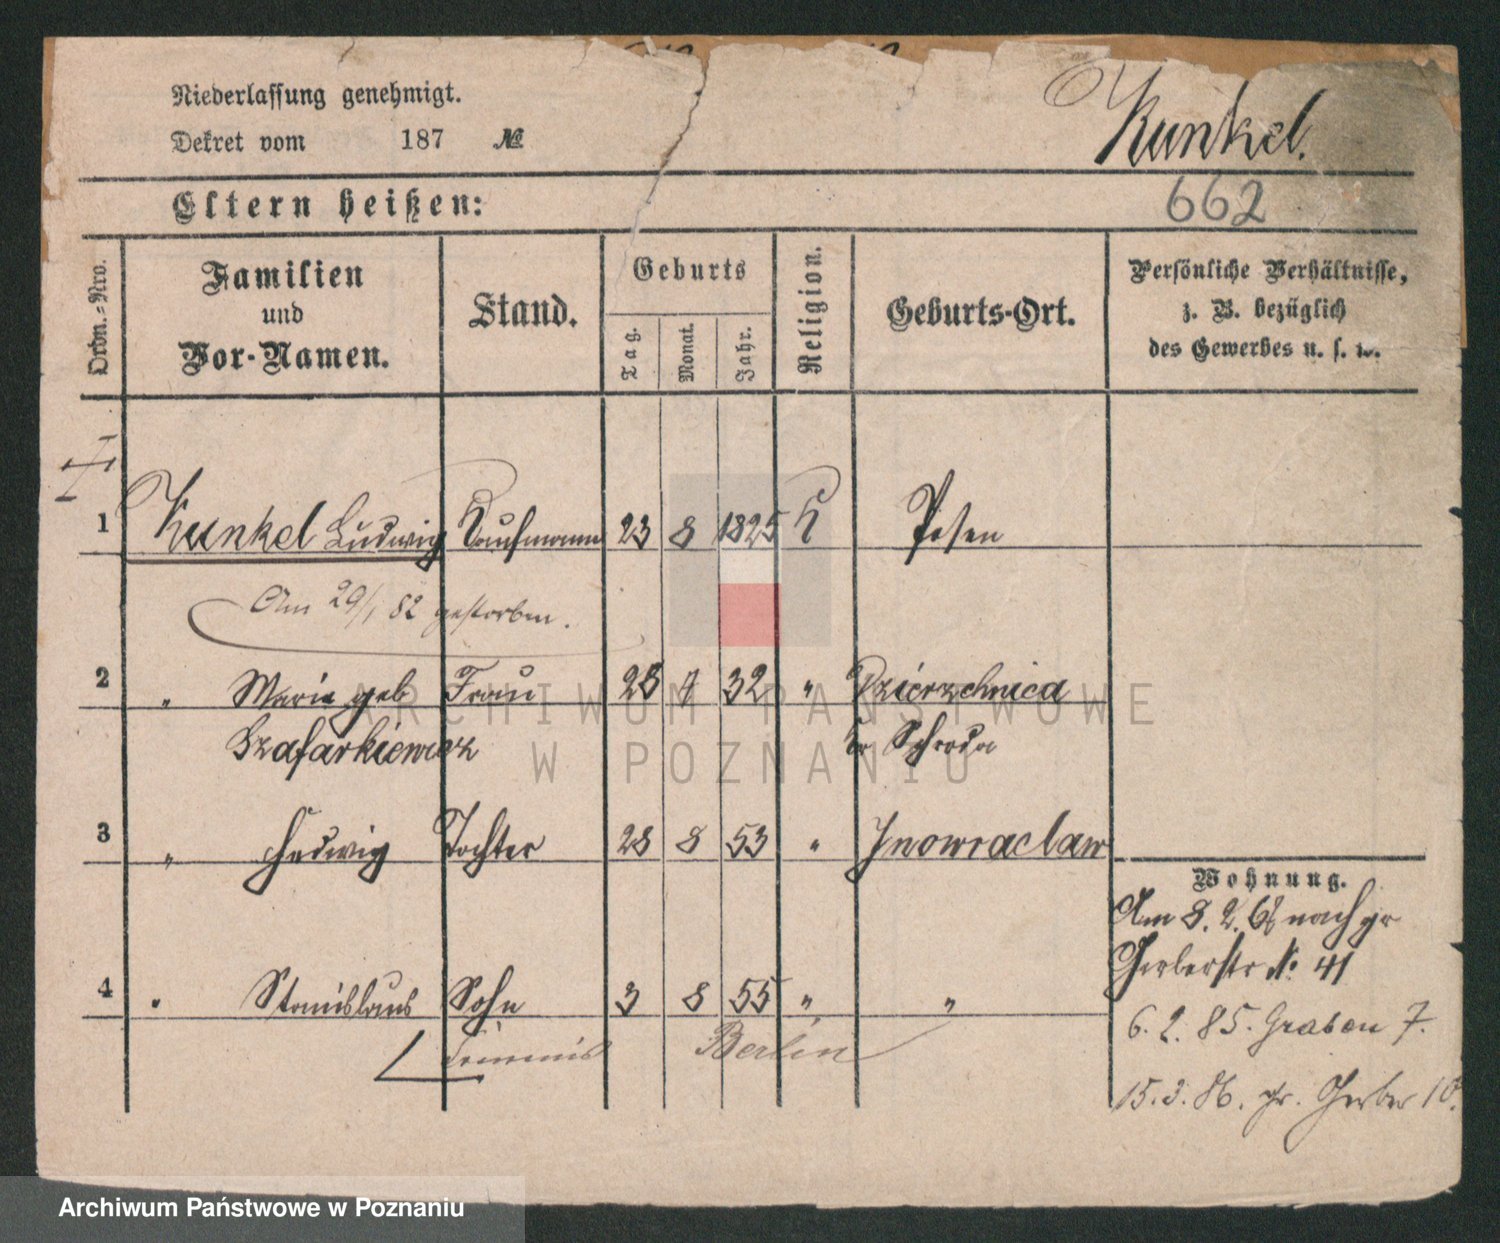 Niederlassung genehmigt.
Dekret vom 187 №
Kunkel.
Eltern heißen:
662
Ordn.-Nro.
Familien
und
Vor-Namen.
Stand.
Geburts
Tag.
Monat.
Jahr.
Religion.
Geburts-Ort.
Persönliche Verhältnisse,
z. B. bezüglich
des Gewerbes u. s. w.
1 Kunkel Ludwig Kaufmann 23 8 1825 K Posen
Am 29/1 82 gestorben.
2 " Marie geb Frau 28 32 " Dzierzchnica
Szafarkiewicz Kr Schroda
3 " Hedwig Tochter 28 8 53 " Inowraclaw
Wohnung.
Am 8. 2. nach gr
Gerberstr №: 41
4 " Stanislaus Sohn 3 8 55 " "
6. 2. 85. Graben 7.
Berlin
15. 3. 86. gr. Gerber 10.
ARCHIWUM PAŃSTWOWE
W POZNANIU
Archiwum Państwowe w Poznaniu